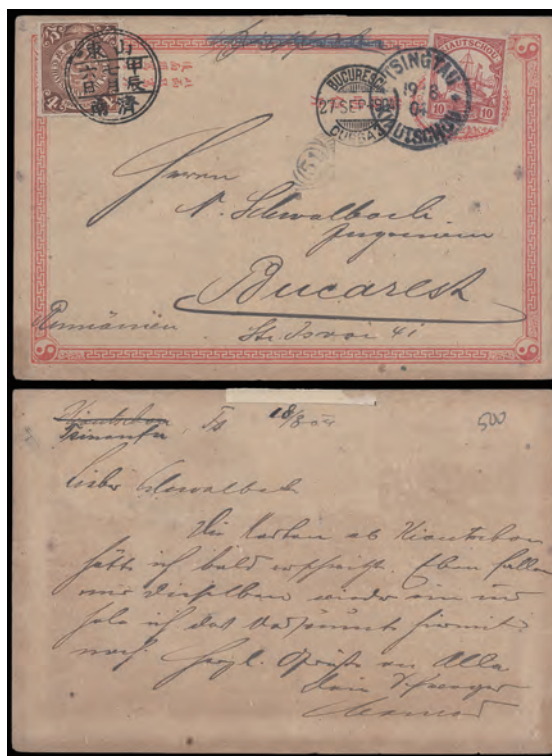 KIAUTSCHOU
10 10
山東
甲辰
七月
六日
濟南
BUCURESCI
27 SEP 904
CURSA 3
TSINGTAU
19 8
04
KIAUTSCHOU
51
Herrn
N. Schwalbach
Ingenieur
Bucarest
Rumänien
Str. Isvor 41
Kiautschou
Tsinanfu, 18/8 04
500
Lieber Schwalbach
Die Karten ab Kiautschou
hätte ich bald verschwitzt. Eben fallen
mir dieselben wieder ein und
hole ich das Versäumte hiermit
nach. Herzl. Grüße an Alle
Dein Schwager